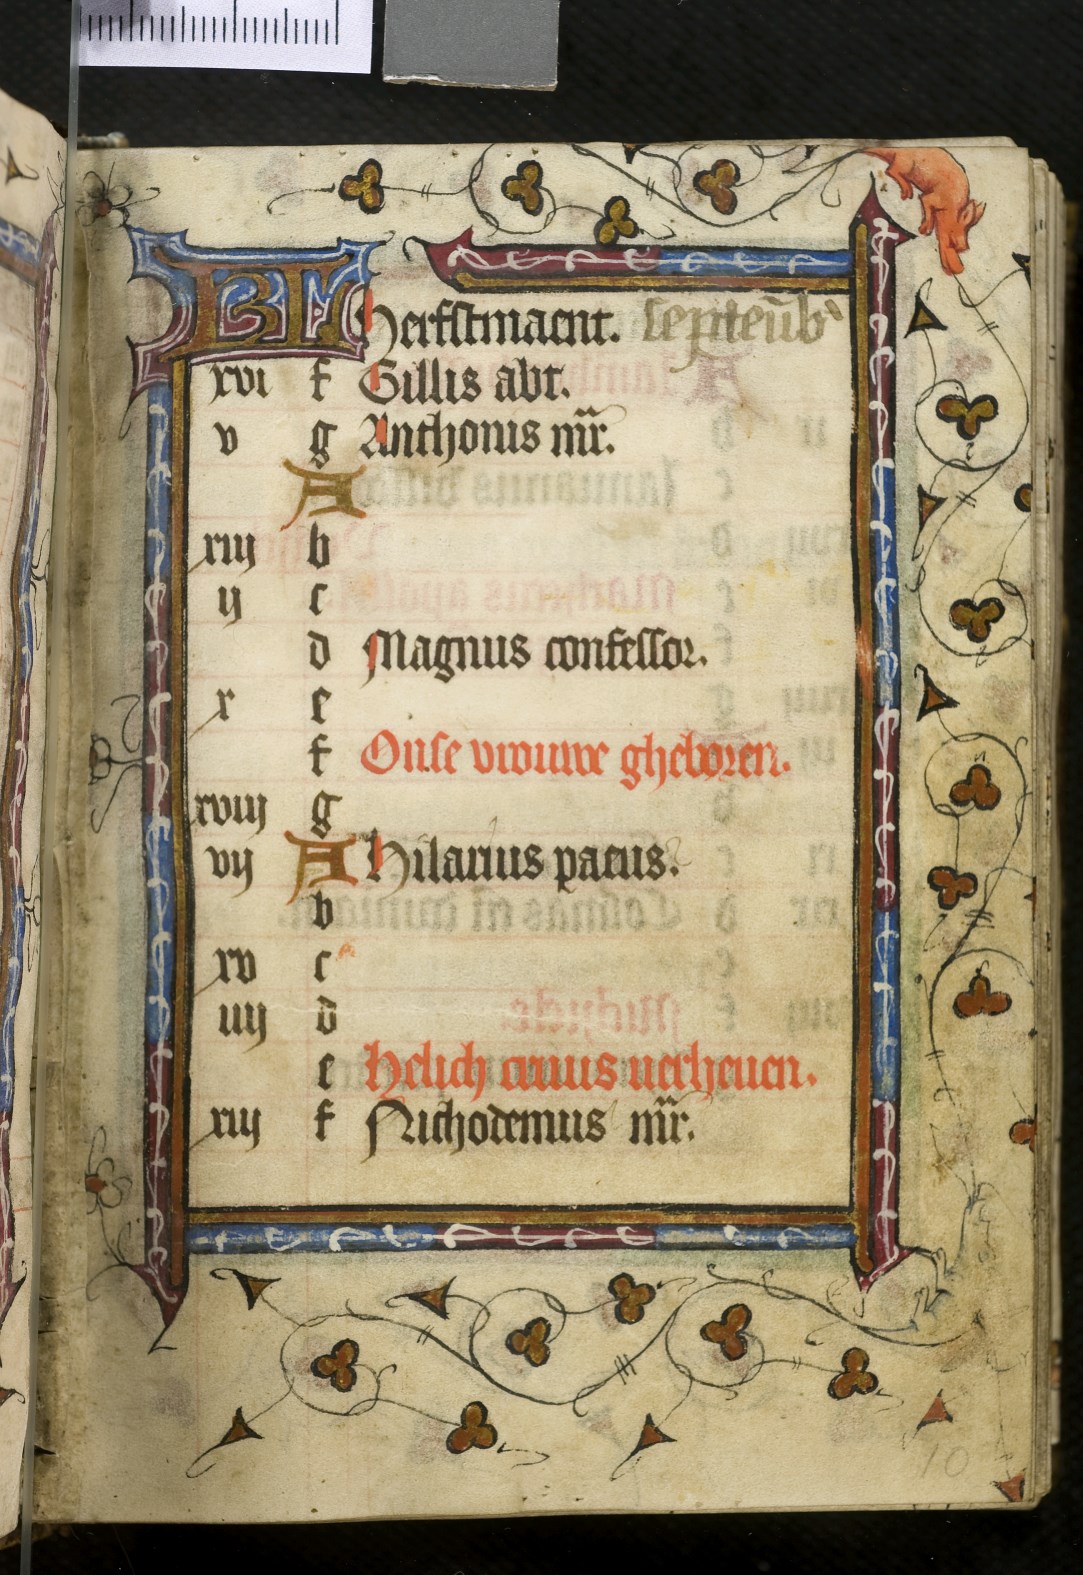 KL herfstmaent. septe͞mb
xvi f Gillis abt.
v g Anthonis mr̄.
A
xiij b
ij c
d Magnus confessor.
x e
f Onse vrouwe gheboren.
xviij g
vij A hilarius paeus.
b
xv c
iiij d
e helich cruus uerheuen.
xiij f Nichodemus mr̄.
10